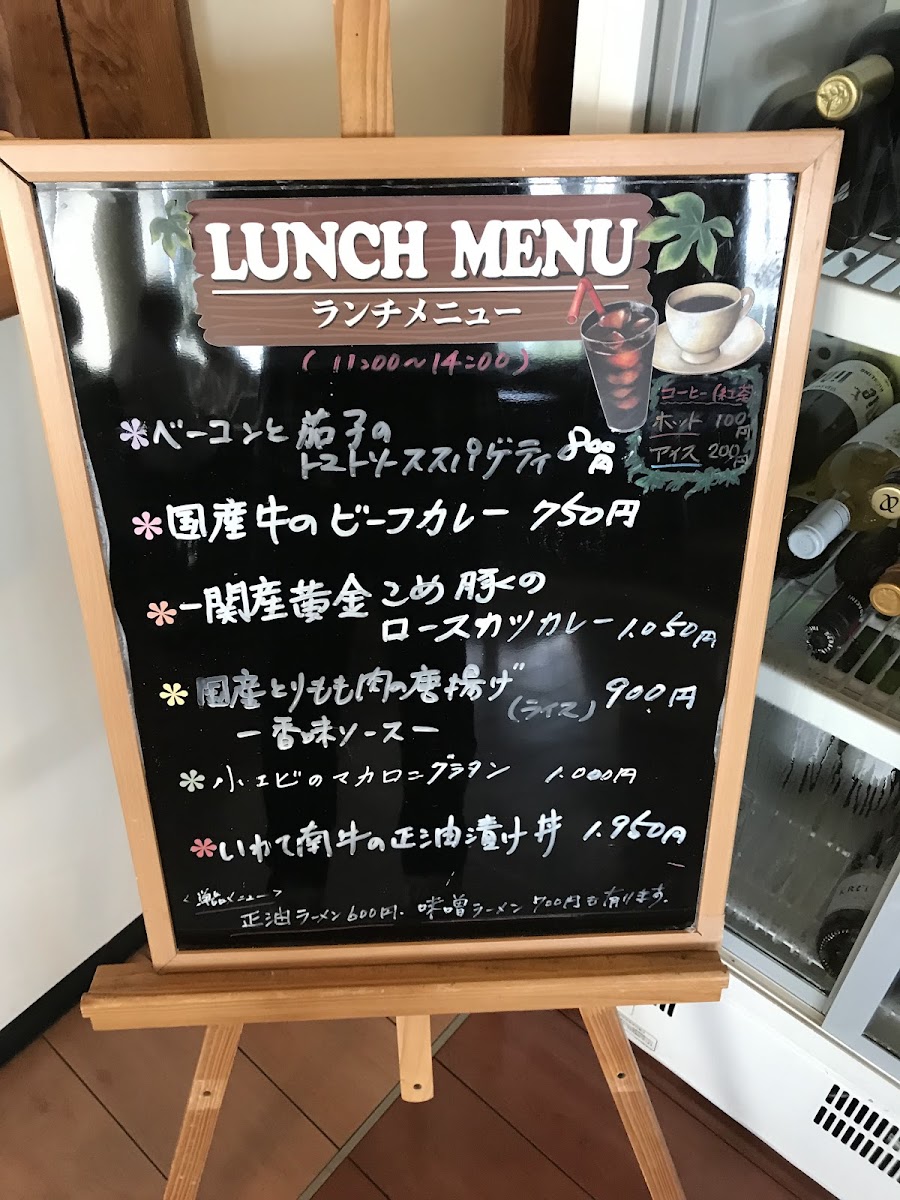 LUNCH MENU
ランチメニュー
(11:00〜14:00)
コーヒー(紅茶
ホット 100円
アイス 200円
*ベーコンと茄子の
トマトソーススパゲティ 800円
*国産牛のビーフカレー 750円
*一関産黄金こめ豚くの
ロースカツカレー 1.050円
*国産とりもも肉の唐揚げ
(ライス) 900円
ー香味ソースー
*小エビのマカロニグラタン 1.000円
*いわて南牛の正油漬け丼 1.950円
メニュー>
正油ラーメン600円、味噌ラーメン700円も有ります.